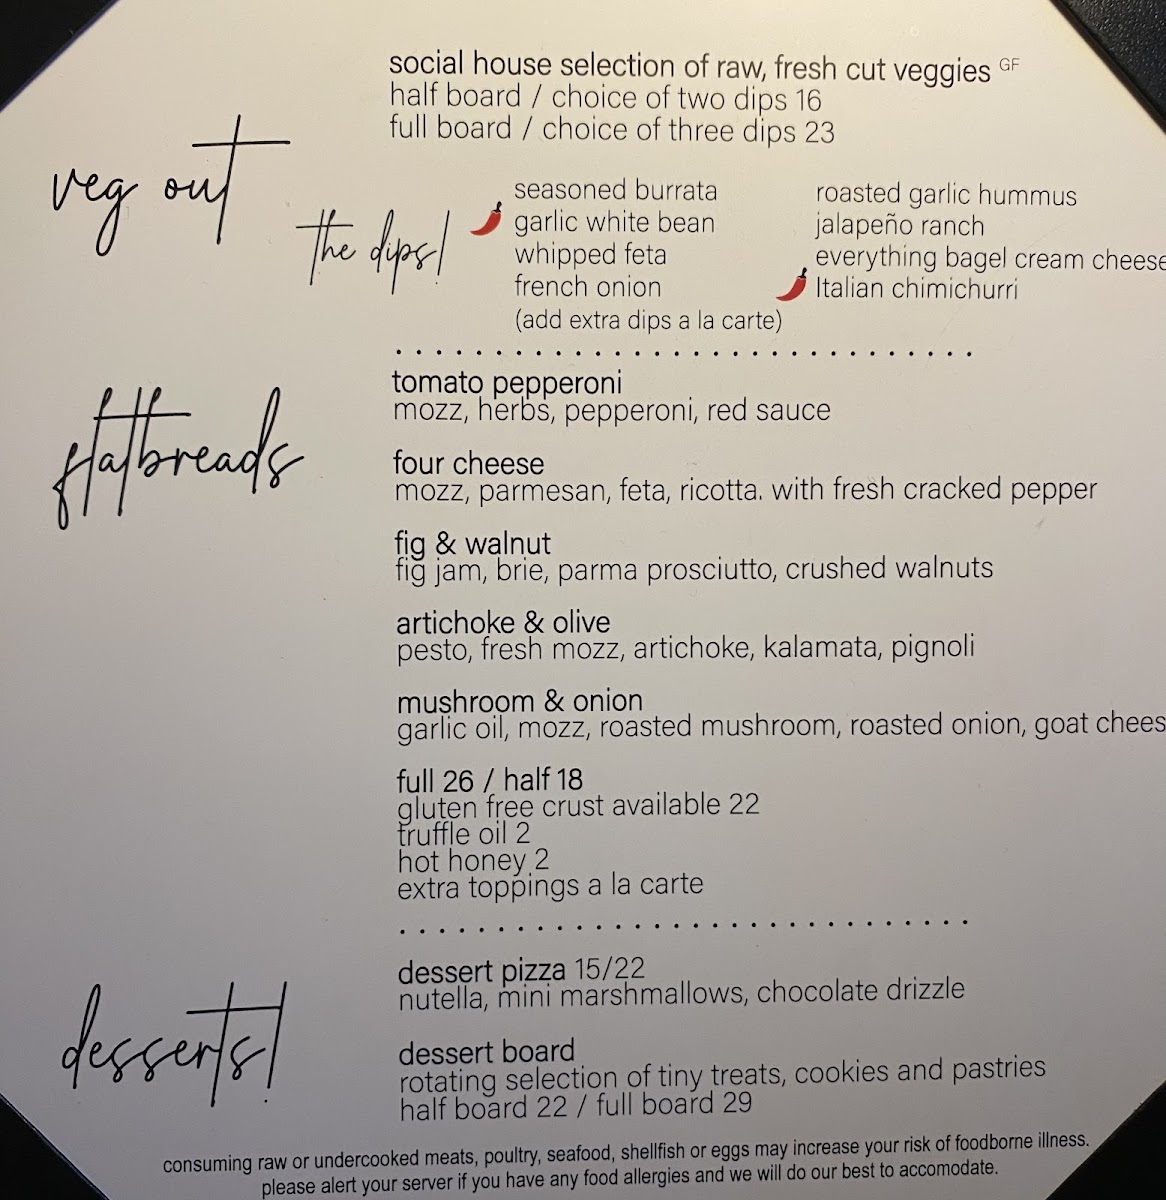 veg out
social house selection of raw, fresh cut veggies GF
half board / choice of two dips 16
full board / choice of three dips 23
the dips!
seasoned burrata
garlic white bean
whipped feta
french onion
(add extra dips a la carte)
roasted garlic hummus
jalapeño ranch
everything bagel cream cheese
Italian chimichurri
flatbreads
tomato pepperoni
mozz, herbs, pepperoni, red sauce
four cheese
mozz, parmesan, feta, ricotta. with fresh cracked pepper
fig & walnut
fig jam, brie, parma prosciutto, crushed walnuts
artichoke & olive
pesto, fresh mozz, artichoke, kalamata, pignoli
mushroom & onion
garlic oil, mozz, roasted mushroom, roasted onion, goat chees
full 26 / half 18
gluten free crust available 22
truffle oil 2
hot honey 2
extra toppings a la carte
desserts!
dessert pizza 15/22
nutella, mini marshmallows, chocolate drizzle
dessert board
rotating selection of tiny treats, cookies and pastries
half board 22 / full board 29
consuming raw or undercooked meats, poultry, seafood, shellfish or eggs may increase your risk of foodborne illness.
please alert your server if you have any food allergies and we will do our best to accomodate.